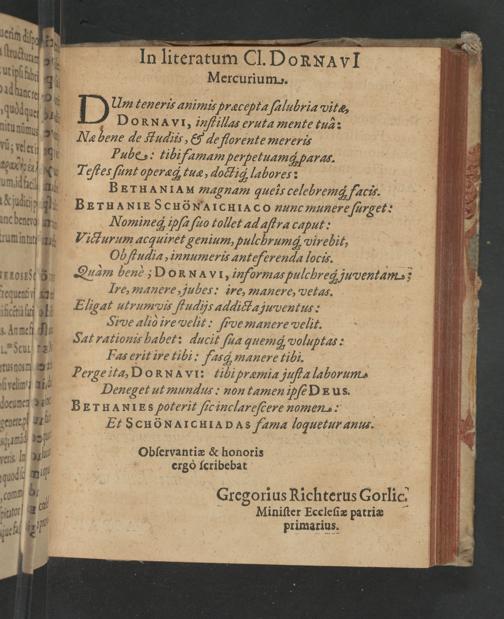 In literatum Cl. DORNAVI
Mercurium.
DUm teneris animis præcepta salubria vitæ,
DORNAVI, instillas eruta mente tuâ:
Næ bene de studiis, & de florente mereris
Pube: tibi famam perpetuamq́; paras.
Testes sunt operæq́; tuæ, doctiq́; labores:
BETHANIAM magnam queîs celebremq́; facis.
BETHANIE SCHÖNAICHIACO nunc munere surget:
Nomineq́; ipsa suo tollet ad astra caput:
Victurum acquiret genium, pulchrumq́; virebit,
Ob studia, innumeris anteferenda locis.
Quàm benè; DORNAVI, informas pulchreq́; juventam;
Ire, manere, jubes: ire, manere, vetas.
Eligat utrumvis studijs addicta juventus:
Sive aliò ire velit: sive manere velit.
Sat rationis habet: ducit sua quemq́; voluptas:
Fas erit ire tibi: fasq́; manere tibi.
Perge ita, DORNAVI: tibi præmia justa laborum
Deneget ut mundus: non tamen ipse DEUS.
BETHANIES poterit sic inclarescere nomen:
Et SCHÖNAICHIADAS fama loquetur anus.
Observantiæ & honoris
ergò scribebat
Gregorius Richterus Gorlic.
Minister Ecclesiæ patriæ
primarius.